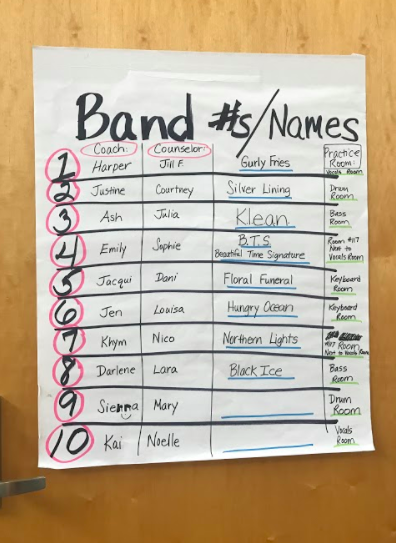 Band #s/Names
Coach: Counselor: Practice Room:
1 Harper Jill F. Gurly Fries Vocals Room
2 Justine Courtney Silver Lining Drum Room
3 Ash Julia Klean Bass Room
4 Emily Sophie B.T.S. Room #117
Beautiful Time Signature Next to
Vocals Room
5 Jacqui Dani Floral Funeral Keyboard Room
6 Jen Louisa Hungry Ocean Keyboard Room
7 Khym Nico Northern Lights
#117 Room
Next to Vocals Room
8 Darlene Lara Black Ice Bass Room
9 Sienna Mary Drum Room
10 Kai Noelle Vocals Room